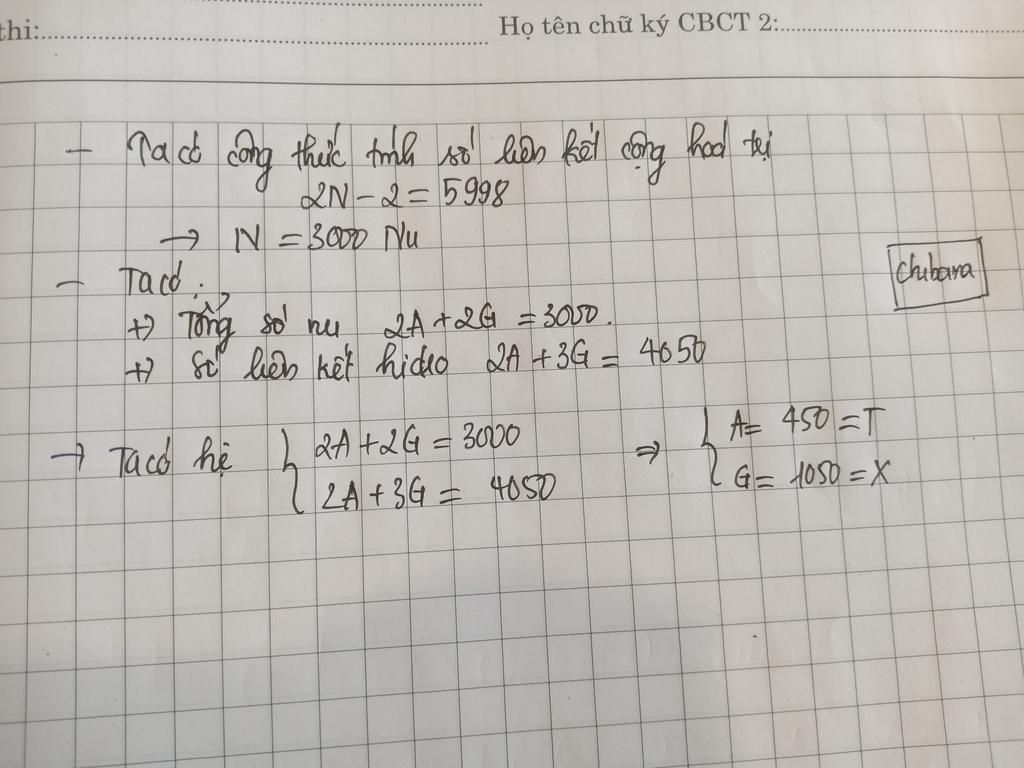 thi:
Họ tên chữ ký CBCT 2:
- Ta có công thức tính số liên kết cộng hoá trị
2N - 2 = 5998
→ N = 3000 Nu
Chibara
- Ta có:
+) Tổng số nu 2A + 2G = 3000.
+) Số liên kết hidro 2A + 3G = 4050
→ Ta có hệ { 2A + 2G = 3000 ⇒ { A = 450 = T
2A + 3G = 4050 G = 1050 = X